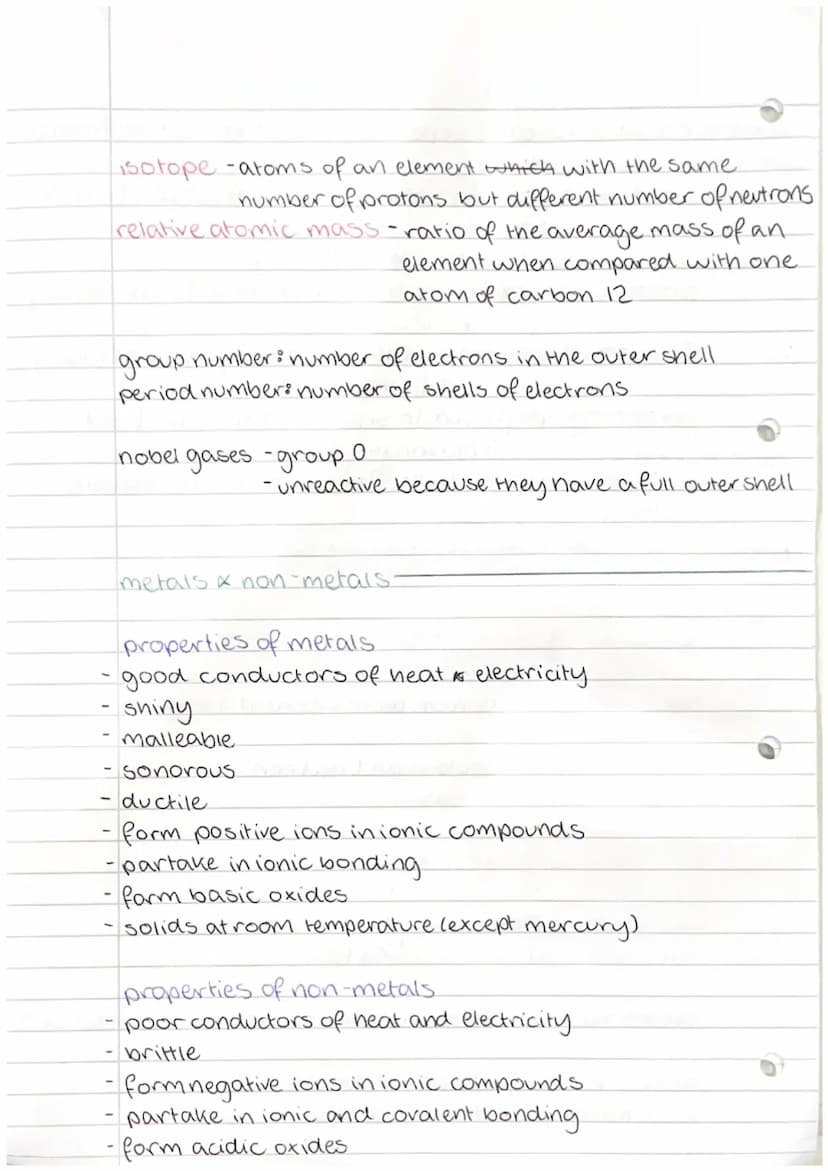 isotope - atoms of an element which with the same
number of protons but different number of neutrons
relative atomic mass - ratio of the average mass of an
element when compared with one
atom of carbon 12
group number: number of electrons in the outer shell
period number: number of shells of electrons
nobel gases - group 0
- unreactive because they have a full outer shell
metals & non-metals
properties of metals
- good conductors of heat & electricity
- shiny
- malleable
- sonorous
- ductile
- form positive ions in ionic compounds
- partake in ionic bonding
- form basic oxides
- solids at room temperature (except mercury)
properties of non-metals
- poor conductors of heat and electricity
- brittle
- form negative ions in ionic compounds
- partake in ionic and covalent bonding
- form acidic oxides